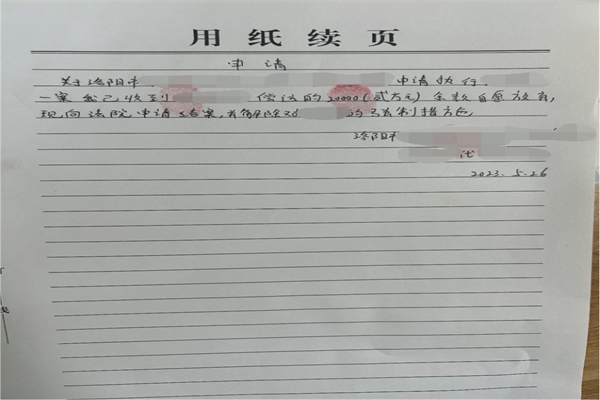 用纸续页
申请
关于洛阳市 申请执行
一案 我已收到 偿还的20000(贰万元)余款自愿放弃,
现向法院申请结案,并解除对 的强制措施。
洛阳市
代
2023.5.26